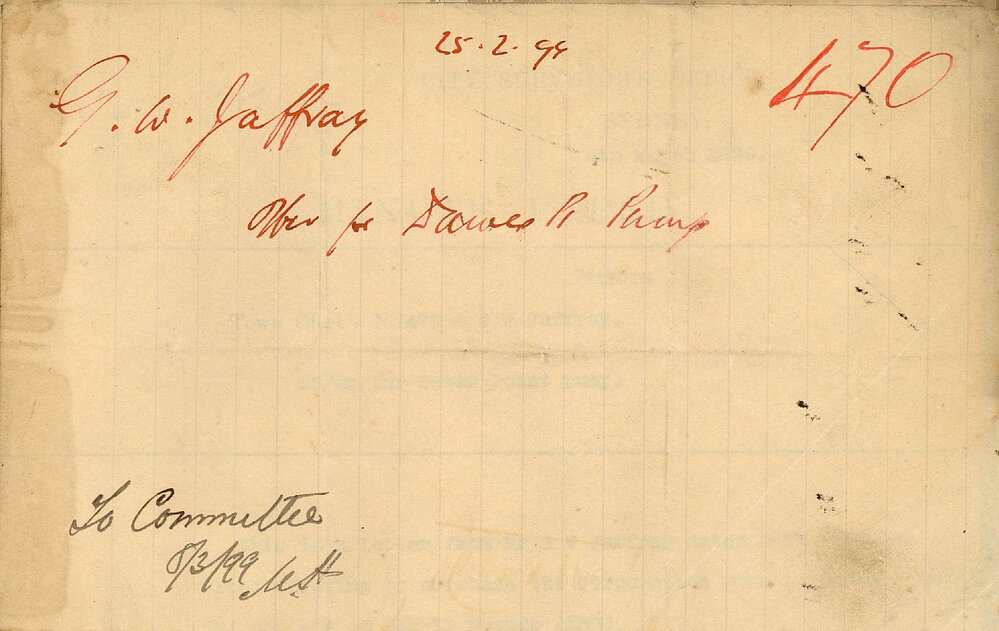 25.2.99
470
G. W. Jaffray
Offer for Dawes Pt Pump
To Committee
8/3/99